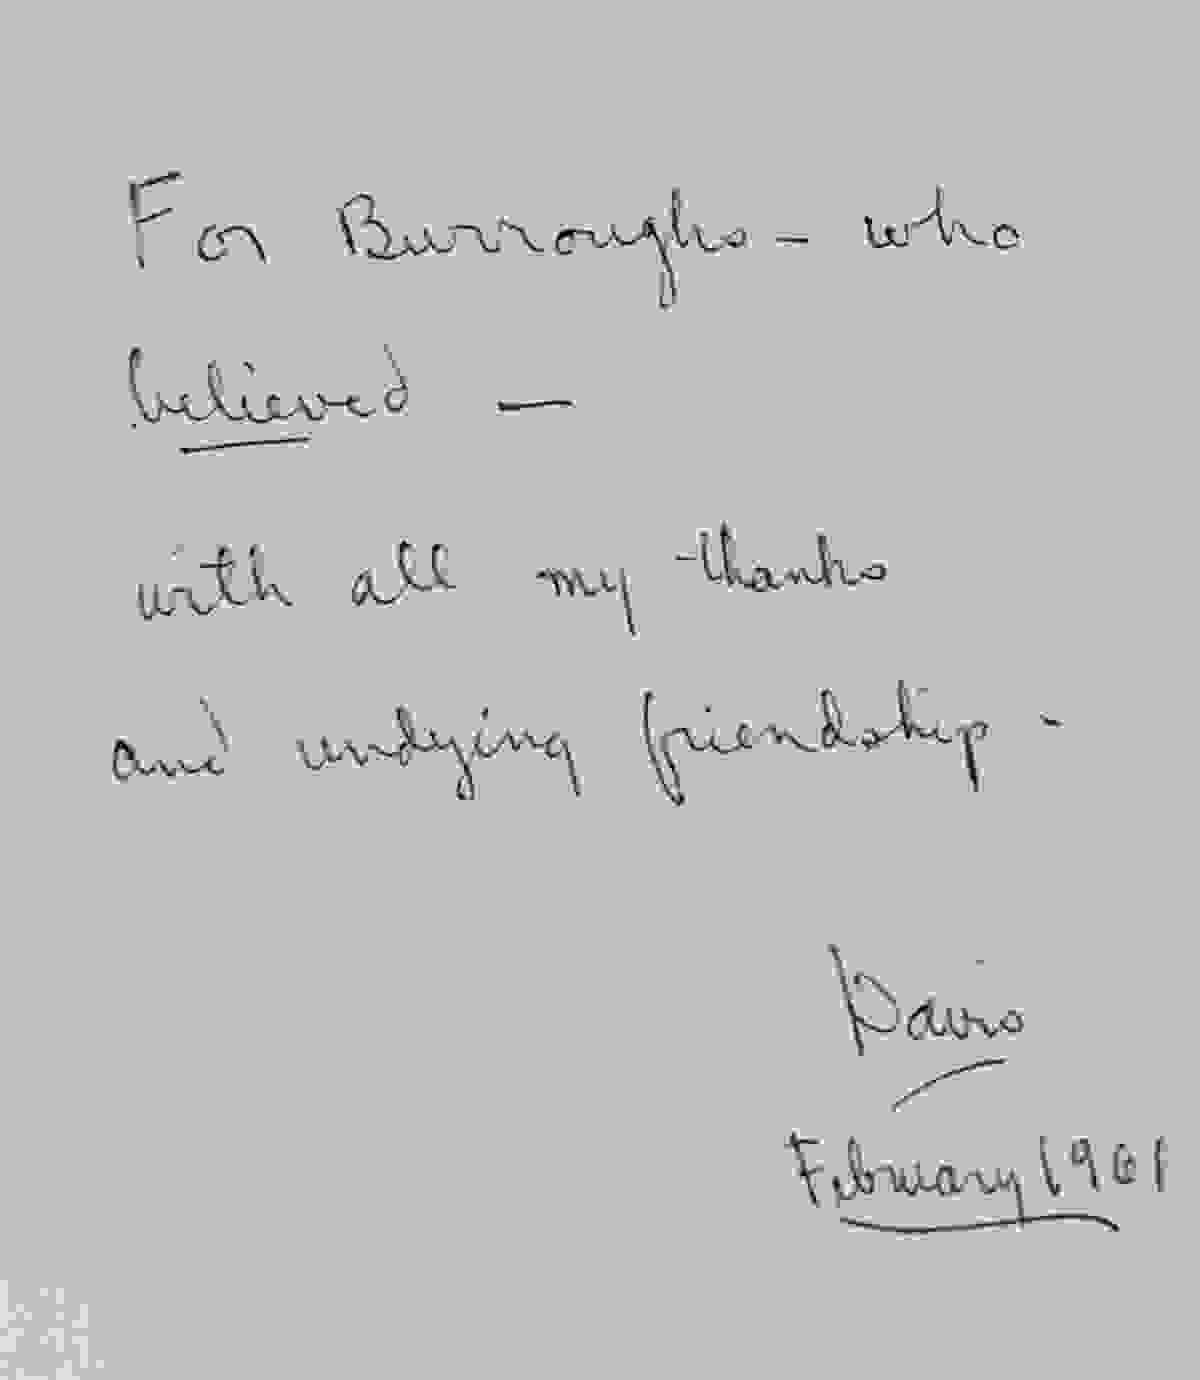 For Burroughs – who
believed —
with all my thanks
and undying friendship –
David
February 1961